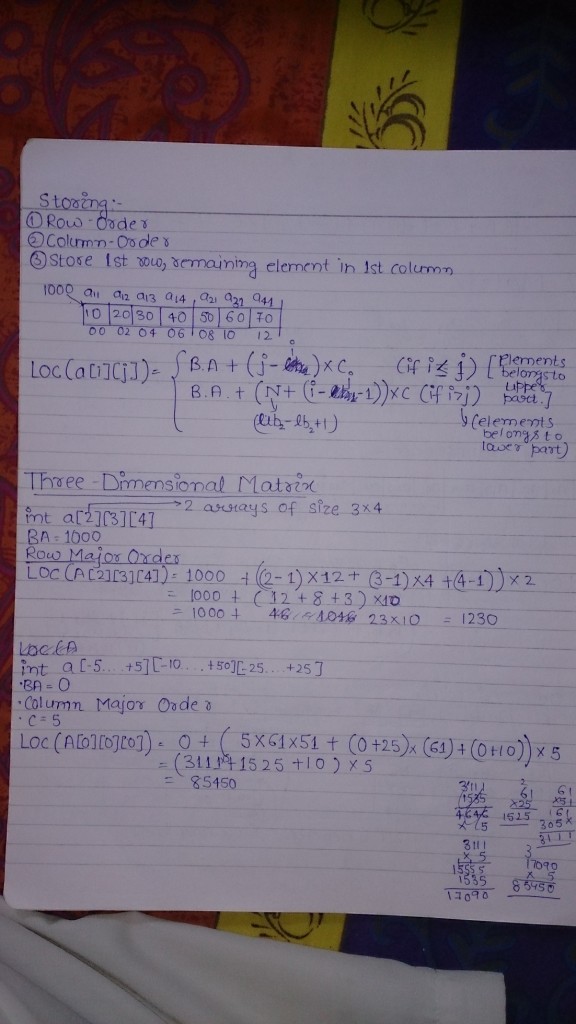 Storing:-
① Row-Order
② Column-Order
③ Store 1st row, remaining element in 1st column
1000 a11 a12 a13 a14 a21 a31 a41
10 20 30 40 50 60 70
00 02 04 06 08 10 12
Loc(a[i][j]) = { B.A + (j - )×C. (if i ≤ j) [Elements belongs to upper part.]
B.A. + (N + (i - -1))×C (if i>j)
(ub2-lb2+1) (elements belongs to lower part)
Three-Dimensional Matrix
int a[2][3][4] → 2 arrays of size 3x4
BA = 1000
Row Major Order
LOC(A[2][3][4]) = 1000 + ((2-1)×12 + (3-1)×4 + (4-1))×2
= 1000 + (12 + 8 + 3) ×10
= 1000 + 23×10 = 1230
int a[-5....+5][-10....+50][-25....+25]
•BA = 0
•Column Major Order
•C = 5
LOC(A[0][0][0]) = 0 + (5×61×51 + (0+25)×(61) + (0+10))×5
= (3111 +1525 +10) × 5
= 85450
3111 2 61 61
1535 ×25 ×51
4646 1525 61
× 5 305×
3111 3111
× 5 3
15555 17090
1535 × 5
17090 85450